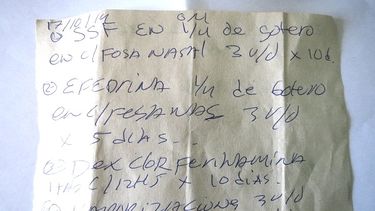 17/10/19
① SSF EN 1/4 de gotero
en c/ FOSA NASAL 3 v/d x 10d.
② EFEDRINA 1/4 de gotero
en c/ FOSA NAS 3 v/d
x 5 dias..
③ DEXCLORFENIRAMINA
c/12HS x 10 dias.
3 v/d